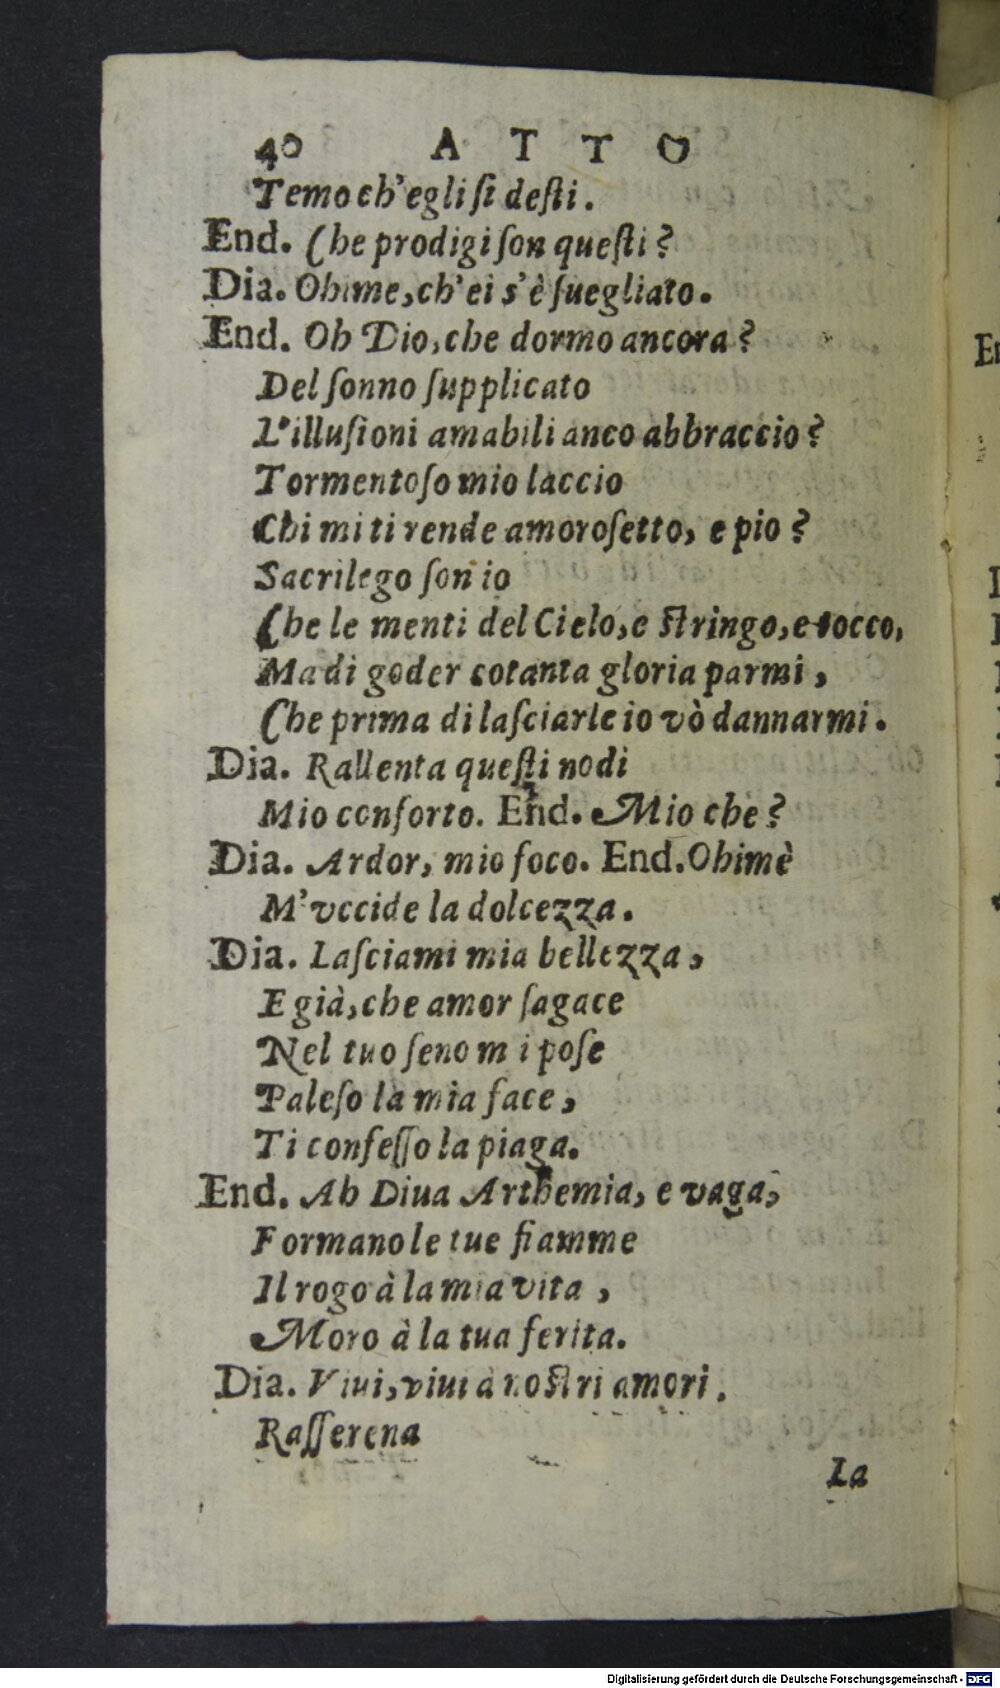 40 ATTO
Temo ch'egli ſi deſti.
End. Che prodigi ſon queſti?
Dia. Ohime, ch'ei s'è ſuegliato.
End. Oh Dio, che dormo ancora?
Del ſonno ſupplicato
L'illuſioni amabili anco abbraccio?
Tormentoſo mio laccio
Chi mi ti rende amoroſetto, e pio?
Sacrilego ſon io
Che le menti del Cielo, e ſtringo, e tocco,
Ma di goder cotanta gloria parmi,
Che prima di laſciarle io vò dannarmi.
Dia. Rallenta queſti nodi
Mio conforto. End. Mio che?
Dia. Ardor, mio foco. End. Ohimè
M'vccide la dolcezza.
Dia. Laſciami mia bellezza,
E già, che amor ſagace
Nel tuo ſeno mi poſe
Paleſo la mia face,
Ti confeſſo la piaga.
End. Ah Diua Arthemia, e vaga,
Formano le tue fiamme
Il rogo à la mia vita,
Moro à la tua ferita.
Dia. Viui, viui à noſtri amori.
Raſſerena
La
Digitalisierung gefördert durch die Deutsche Forschungsgemeinschaft - DFG